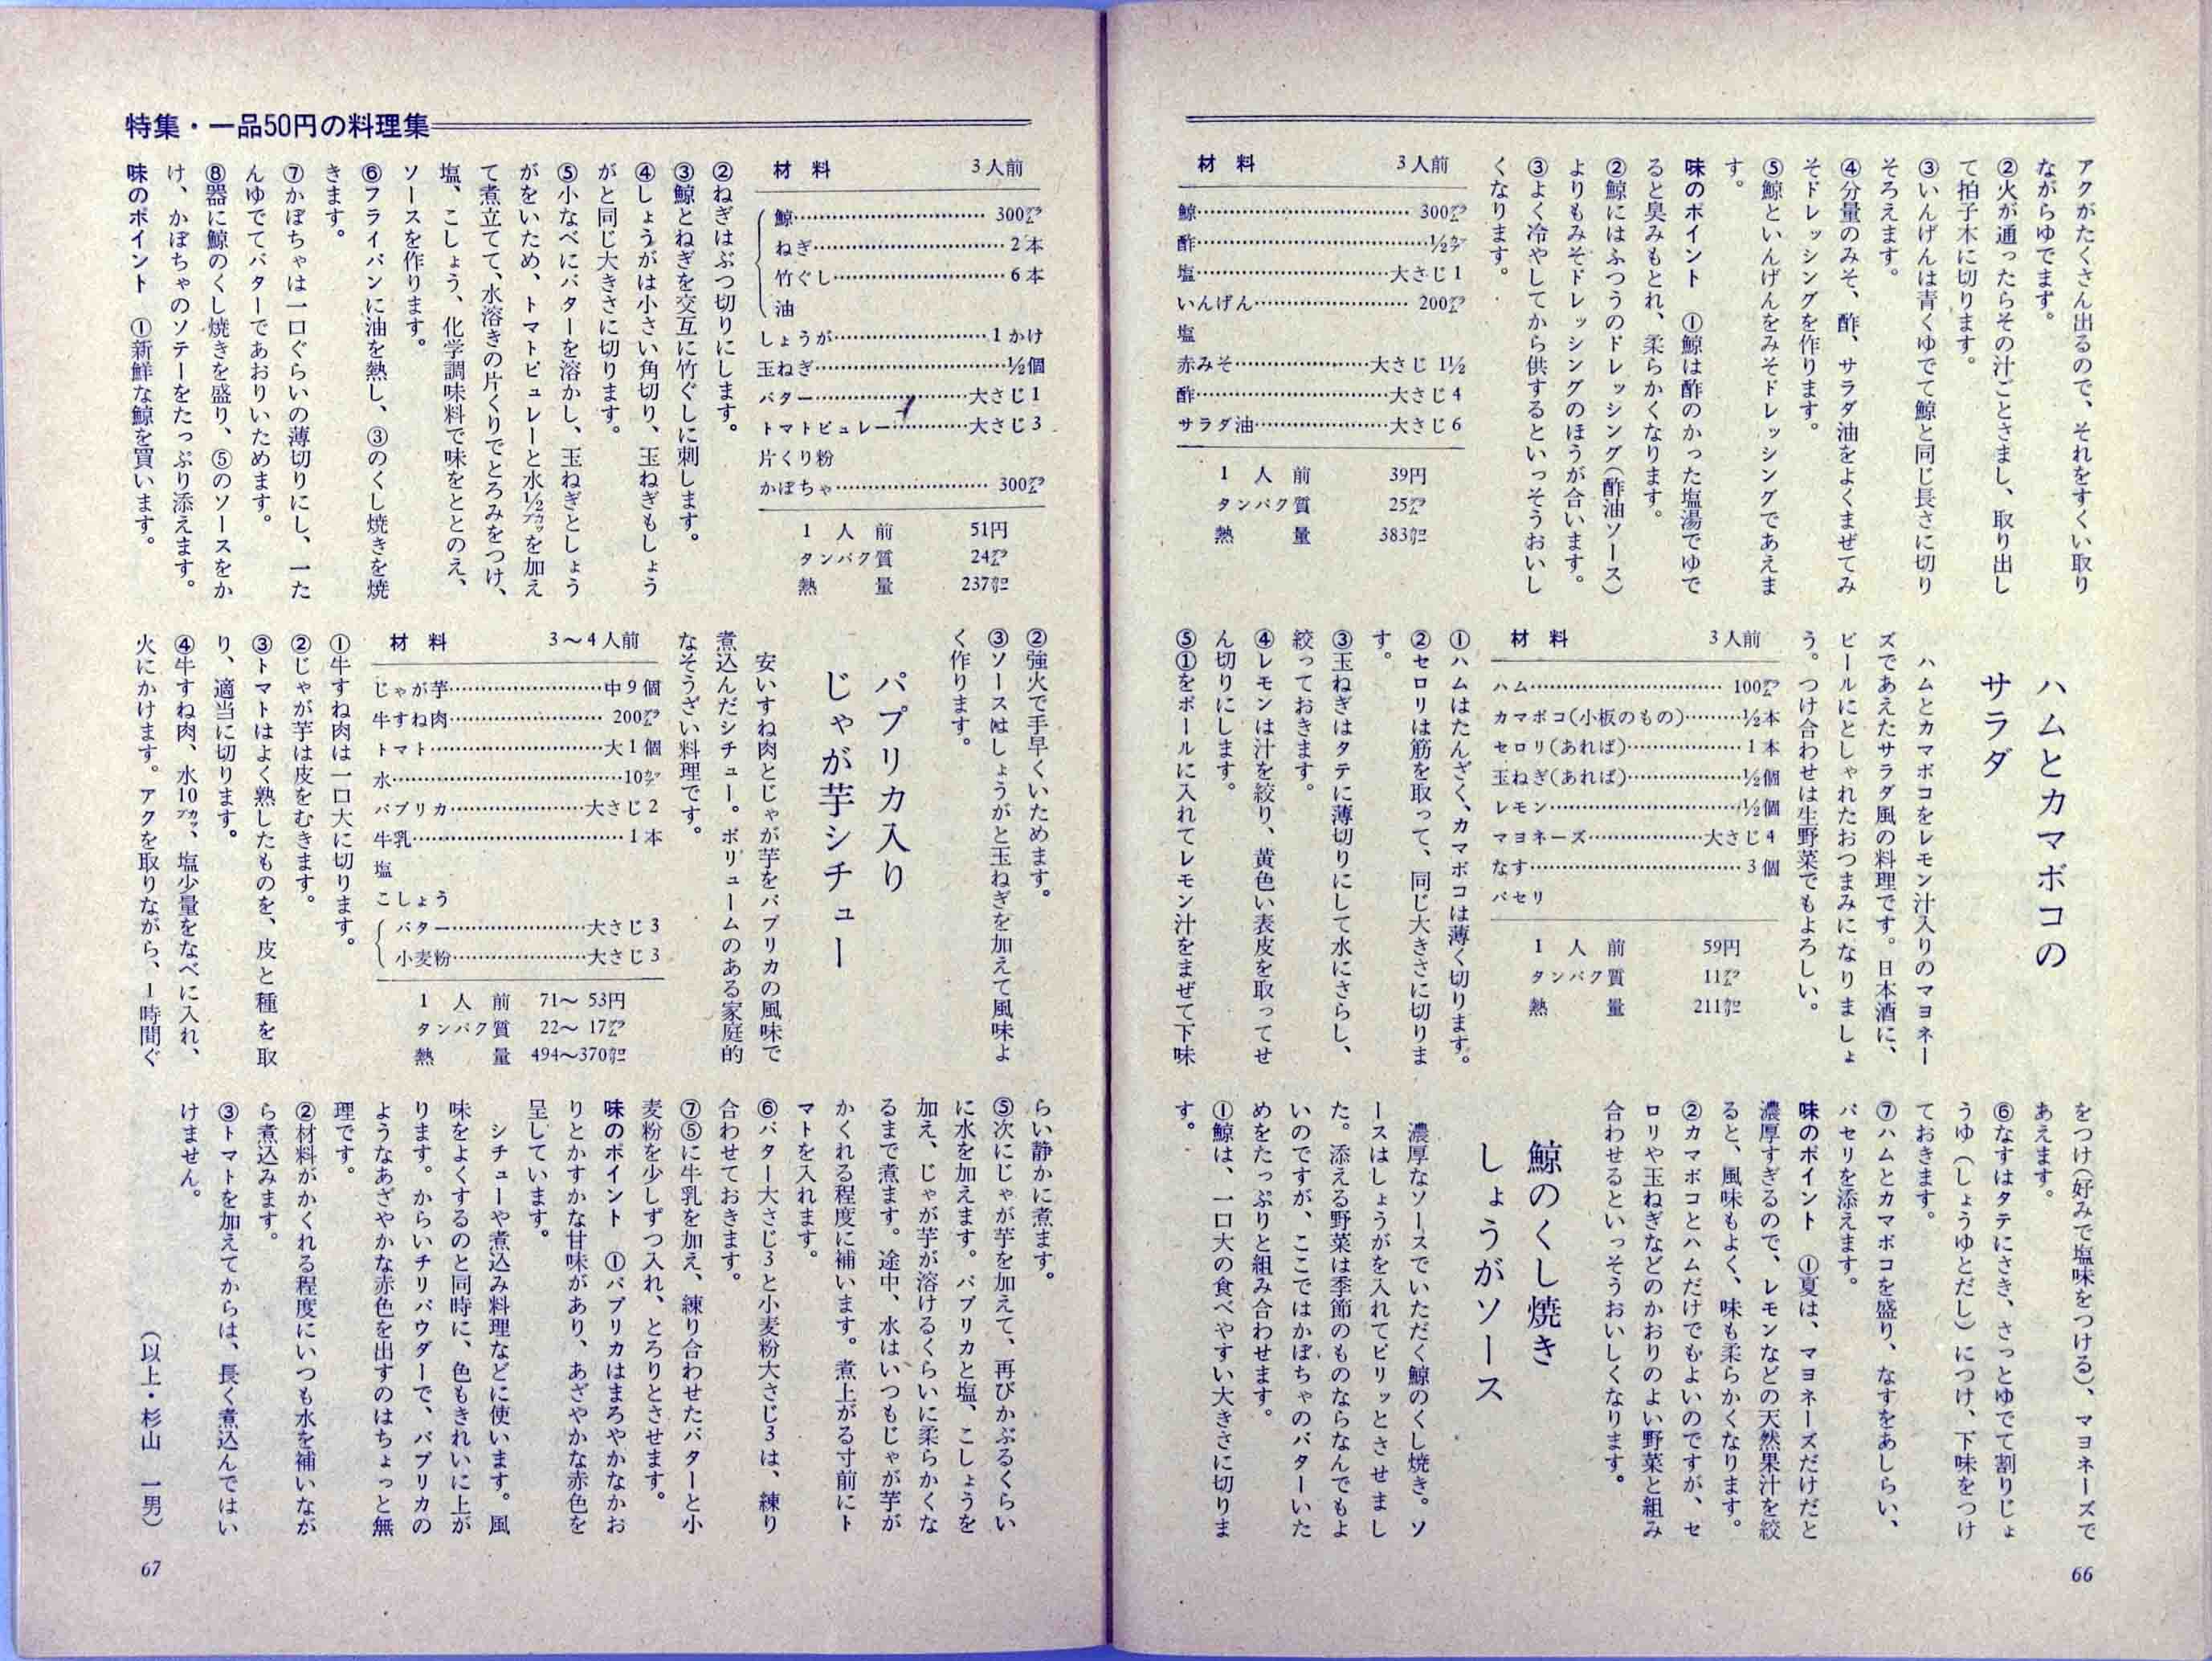 アクがたくさん出るので、それをすくい取り
ながらゆでます。
②火が通ったらその汁ごとさまし、取り出し
て拍子木に切ります。
③いんげんは青くゆでて鯨と同じ長さに切り
そろえます。
④分量のみそ、酢、サラダ油をよくまぜてみ
そドレッシングを作ります。
⑤鯨といんげんをみそドレッシングであえま
す。
味のポイント ①鯨は酢のかった塩湯でゆで
ると臭みもとれ、柔らかくなります。
②鯨にはふつうのドレッシング(酢油ソース)
よりもみそドレッシングのほうが合います。
③よく冷やしてから供するといっそうおいし
くなります。
材料 3人前
鯨……300㌘
酢……½㌍
塩……大さじ1
いんげん……200㌘
塩
赤みそ……大さじ 1½
酢……大さじ4
サラダ油……大さじ6
1人前 39円
タンパク質 25㌘
熱量 383㌍
ハムとカマボコの
サラダ
ハムとカマボコをレモン汁入りのマヨネー
ズであえたサラダ風の料理です。日本酒に、
ビールにとしゃれたおつまみになりましょ
う。つけ合わせは生野菜でもよろしい。
材料 3人前
ハム……100㌘
カマボコ(小板のもの)……½本
セロリ(あれば)……1本
玉ねぎ(あれば)……½個
レモン……½個
マヨネーズ……大さじ4
なす……3個
パセリ
1人前 59円
タンパク質 11㌘
熱量 211㌍
①ハムはたんざく、カマボコは薄く切ります。
②セロリは筋を取って、同じ大きさに切りま
す。
③玉ねぎはタテに薄切りにして水にさらし、
絞っておきます。
④レモンは汁を絞り、黄色い表皮を取ってせ
ん切りにします。
⑤①をボールに入れてレモン汁をまぜて下味
をつけ(好みで塩味をつける)、マヨネーズで
あえます。
⑥なすはタテにさき、さっとゆでて割りじょ
うゆ(しょうゆとだし)につけ、下味をつけ
ておきます。
⑦ハムとカマボコを盛り、なすをあしらい、
パセリを添えます。
味のポイント ①夏は、マヨネーズだけだと
濃厚すぎるので、レモンなどの天然果汁を絞
ると、風味もよく、味も柔らかくなります。
②カマボコとハムだけでもよいのですが、セ
ロリや玉ねぎなどのかおりのよい野菜と組み
合わせるといっそうおいしくなります。
鯨のくし焼き
しょうがソース
濃厚なソースでいただく鯨のくし焼き。ソ
ースはしょうがを入れてピリッとさせまし
た。添える野菜は季節のものならなんでもよ
いのですが、ここではかぼちゃのバターいた
めをたっぷりと組み合わせます。
①鯨は、一口大の食べやすい大きさに切りま
す。
66
特集・一品50円の料理集
材料 3人前
鯨……300㌘
ねぎ……2本
竹ぐし……6本
油
しょうが……1かけ
玉ねぎ……½個
バター……大さじ1
トマトピュレー……大さじ3
片くり粉
かぼちゃ……300㌘
1人前 51円
タンパク質 24㌘
熱量 237㌍
②ねぎはぶつ切りにします。
③鯨とねぎを交互に竹ぐしに刺します。
④しょうがは小さい角切り、玉ねぎもしょう
がと同じ大きさに切ります。
⑤小なべにバターを溶かし、玉ねぎとしょう
がをいため、トマトピュレーと水½カップを加え
て煮立てて、水溶きの片くりでとろみをつけ、
塩、こしょう、化学調味料で味をととのえ、
ソースを作ります。
⑥フライパンに油を熱し、③のくし焼きを焼
きます。
⑦かぼちゃは一口ぐらいの薄切りにし、一た
んゆでてバターであおりいためます。
⑧器に鯨のくし焼きを盛り、⑤のソースをか
け、かぼちゃのソテーをたっぷり添えます。
味のポイント ①新鮮な鯨を買います。
②強火で手早くいためます。
③ソースはしょうがと玉ねぎを加えて風味よ
く作ります。
パプリカ入り
じゃが芋シチュー
安いすね肉とじゃが芋をパプリカの風味で
煮込んだシチュー。ボリュームのある家庭的
なそうざい料理です。
材料 3〜4人前
じゃが芋……中9個
牛すね肉……200㌘
トマト……大1個
水……10カップ
パプリカ……大さじ2
牛乳……1本
塩
こしょう
バター……大さじ3
小麦粉……大さじ3
1人前 71〜53円
タンパク質 22〜17㌘
熱量 494〜370㌍
①牛すね肉は一口大に切ります。
②じゃが芋は皮をむきます。
③トマトはよく熟したものを、皮と種を取
り、適当に切ります。
④牛すね肉、水10カップ、塩少量をなべに入れ、
火にかけます。アクを取りながら、1時間ぐ
らい静かに煮ます。
⑤次にじゃが芋を加えて、再びかぶるくらい
に水を加えます。パプリカと塩、こしょうを
加え、じゃが芋が溶けるくらいに柔らかくな
るまで煮ます。途中、水はいつもじゃが芋が
かくれる程度に補います。煮上がる寸前にト
マトを入れます。
⑥バター大さじ3と小麦粉大さじ3は、練り
合わせておきます。
⑦⑤に牛乳を加え、練り合わせたバターと小
麦粉を少しずつ入れ、とろりとさせます。
味のポイント ①パプリカはまろやかなかお
りとかすかな甘味があり、あざやかな赤色を
呈しています。
シチューや煮込み料理などに使います。風
味をよくするのと同時に、色もきれいに上が
ります。からいチリパウダーで、パプリカの
ようなあざやかな赤色を出すのはちょっと無
理です。
②材料がかくれる程度にいつも水を補いなが
ら煮込みます。
③トマトを加えてからは、長く煮込んではい
けません。
(以上・杉山 一男)
67